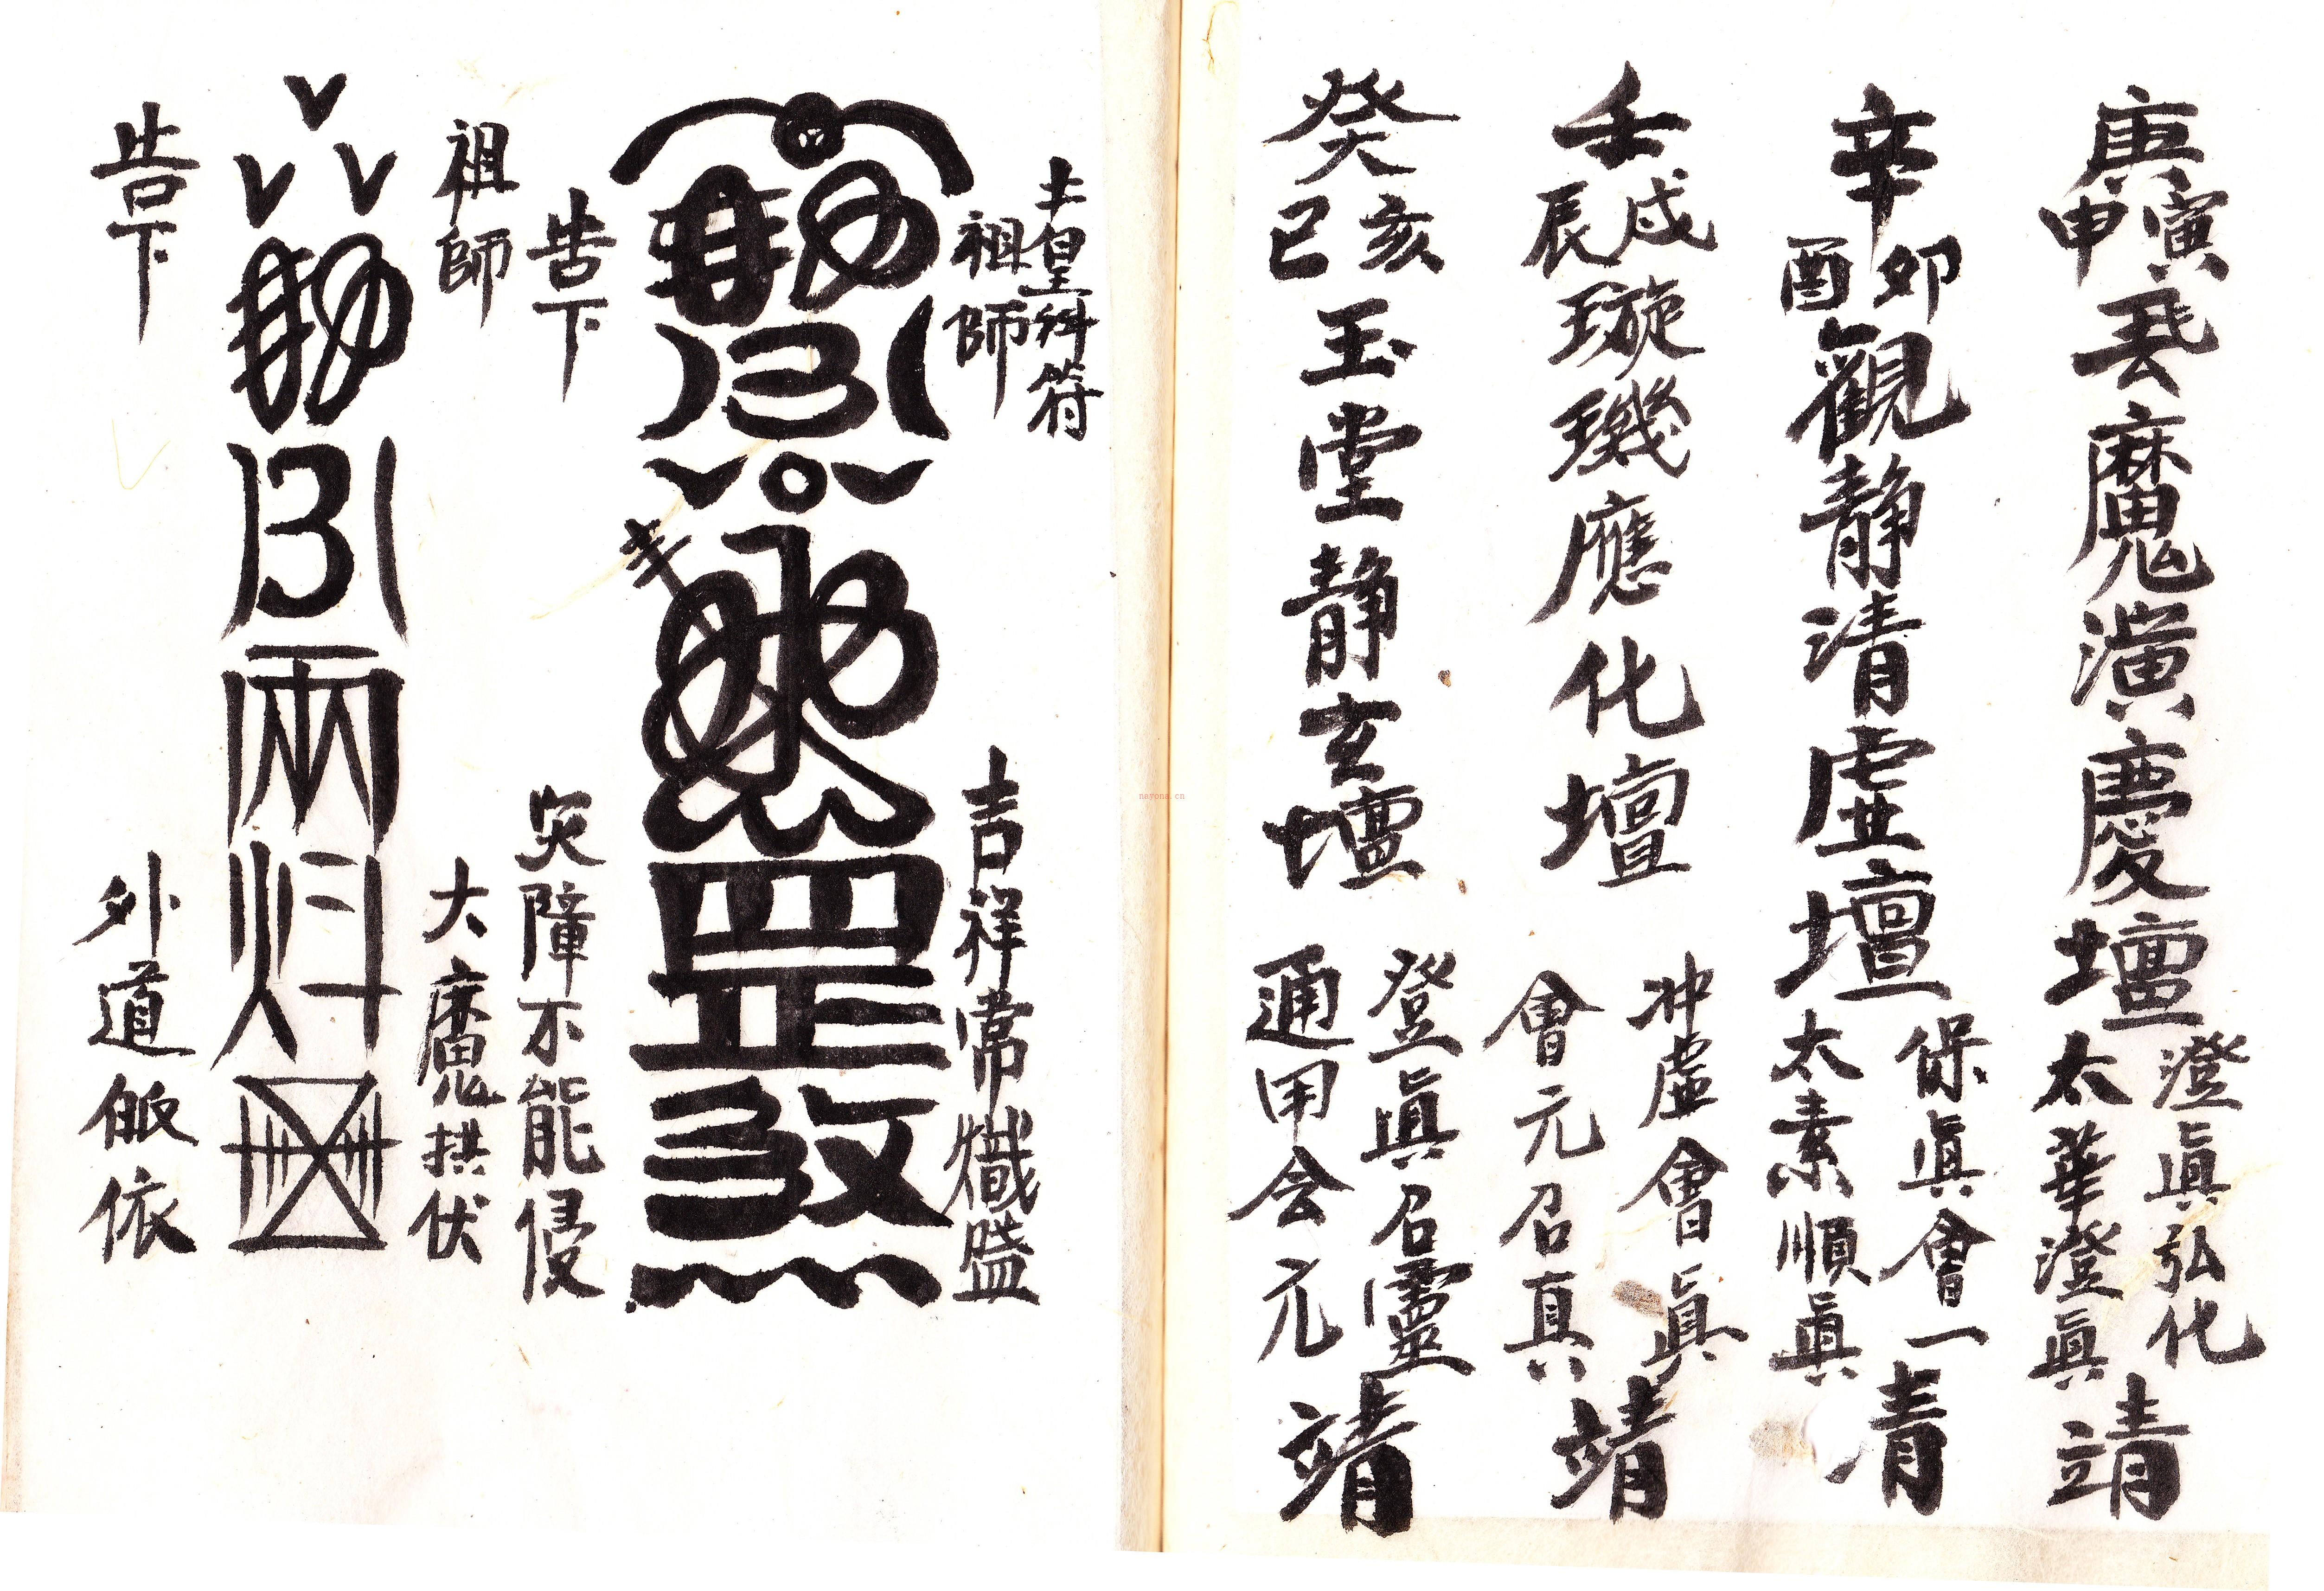 庚寅申丟魔演慶壇澄眞弘化太華澄眞靖
辛卯酉觀靜清虛壇保眞會一太素順眞青
壬戌辰璇璣應化壇沖虛會眞會元召真靖
癸亥巳玉堂静玄壇登眞召靈通甲会元靖
土皇科符
祖師
吉祥常熾盛
勅
罡
煞
告下
災障不能侵
祖師
大魔拱伏
勅
雨
告下
外道皈依
nayona.cn